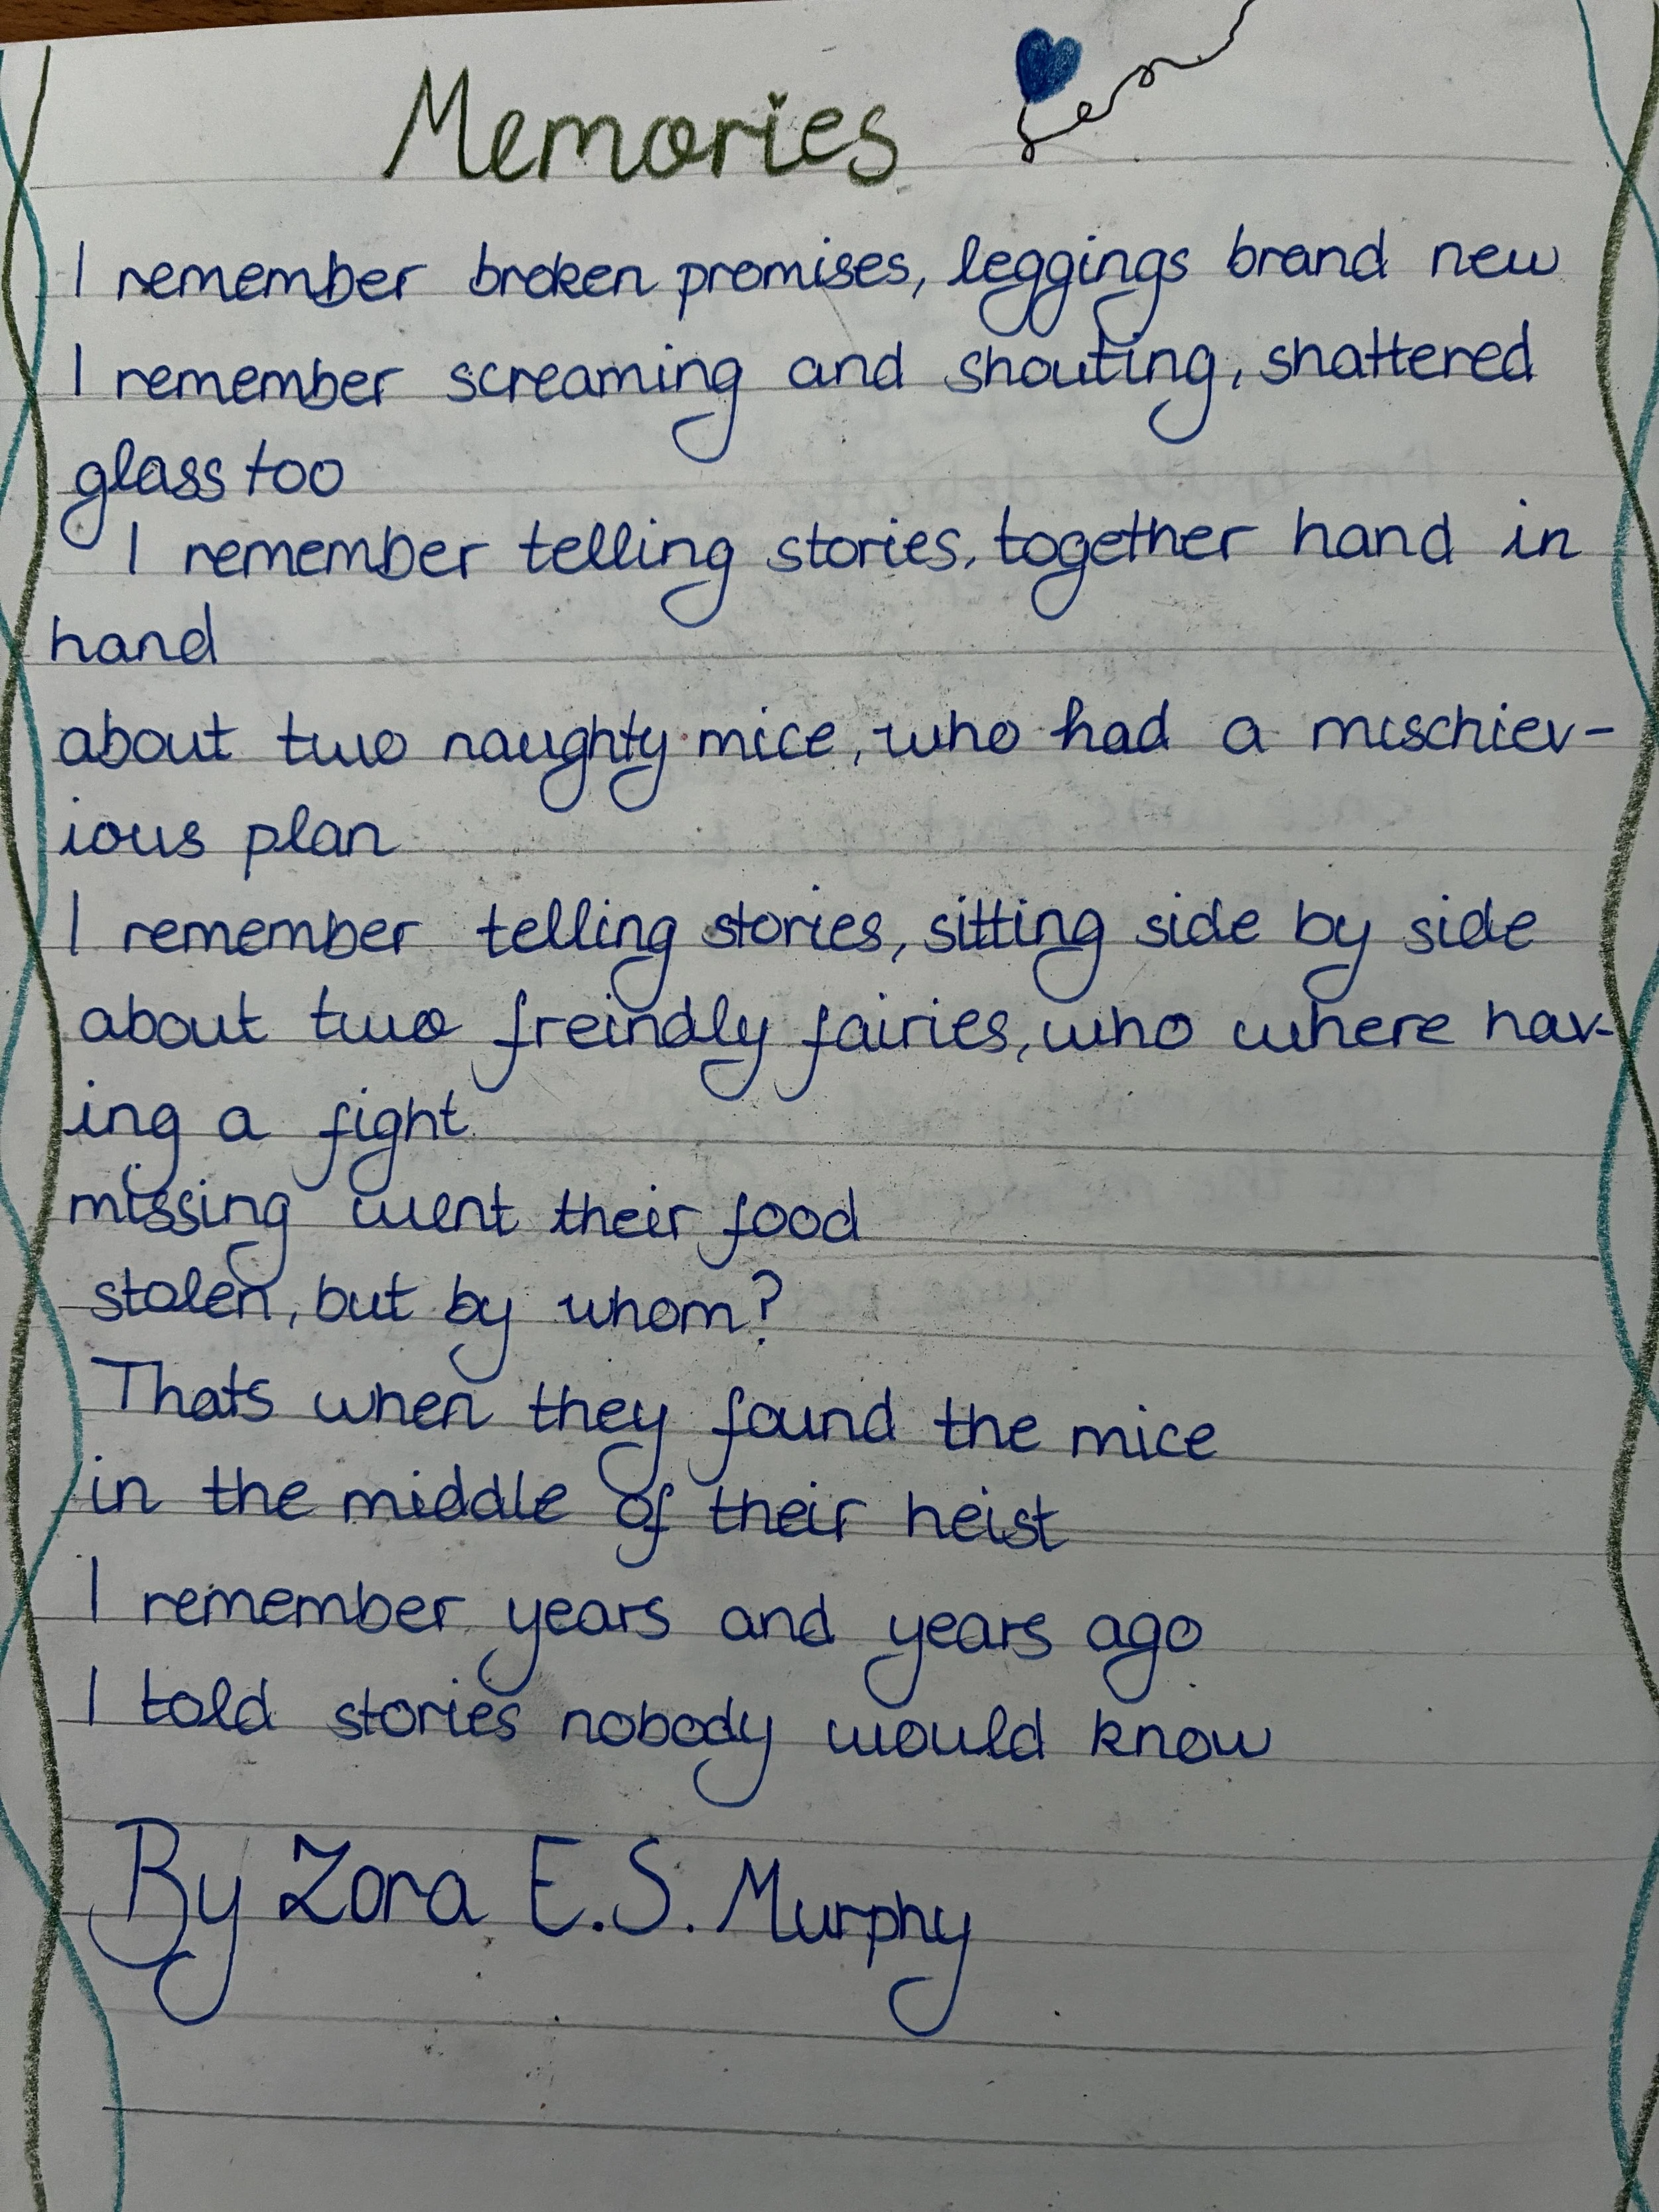 Memories
I remember broken promises, leggings brand new
I remember screaming and shouting, shattered
glass too
I remember telling stories, together hand in
hand
about two naughty mice, who had a mischiev-
ious plan
I remember telling stories, sitting side by side
about two freindly fairies, who where hav-
ing a fight
missing went their food
stolen, but by whom?
Thats when they found the mice
in the middle of their heist
I remember years and years ago
I told stories nobody would know
By Zora E.S. Murphy